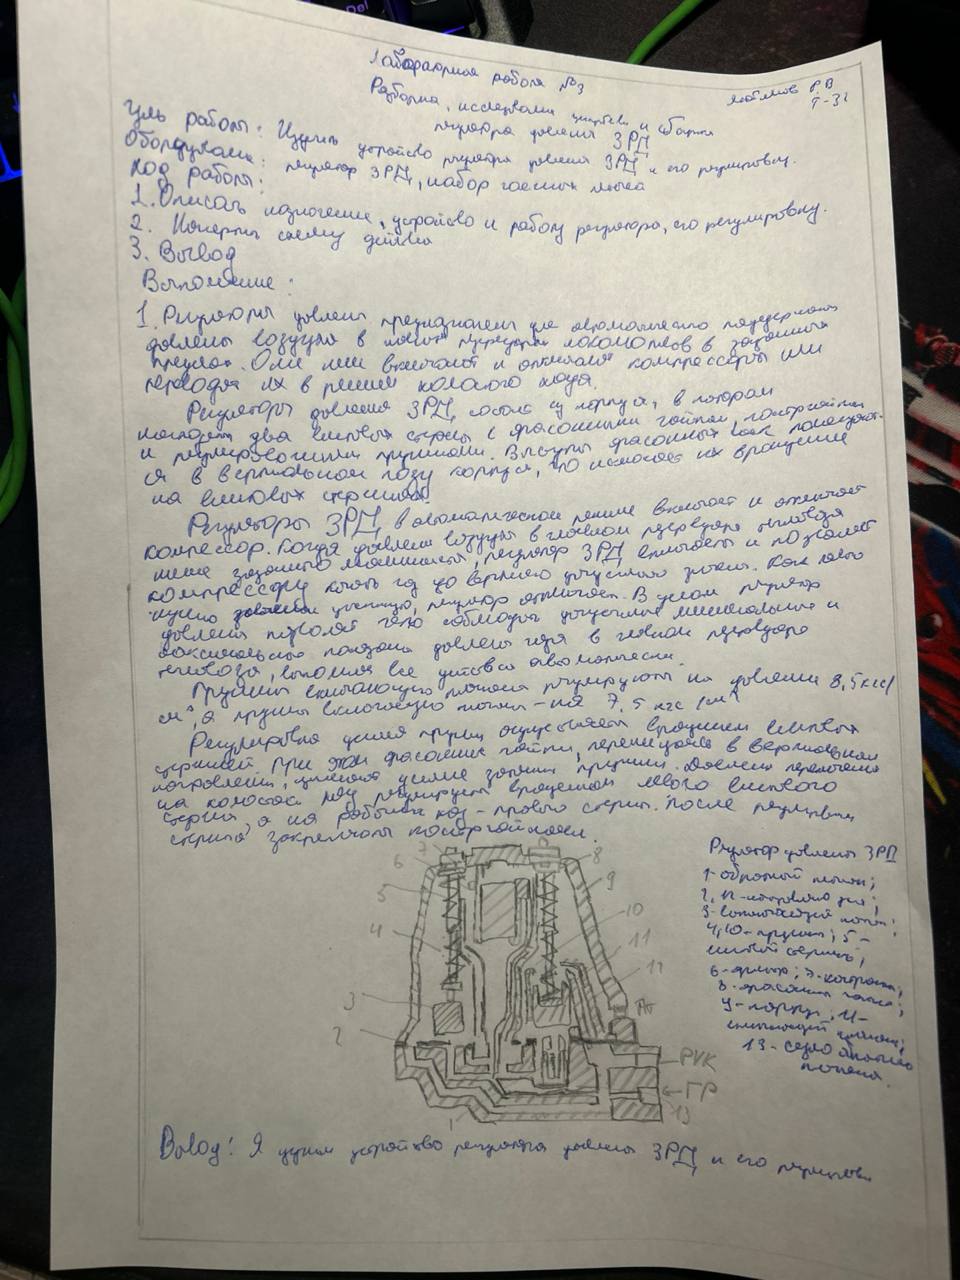 Лабораторная работа №3
Разборка, исследование устройства и сборка
регулятора давления 3РД
Р.В
Т-31
Цель работы: Изучить устройство регулятора давления 3РД и его регулировку.
Оборудование: регулятор 3РД, набор гаечных ключей
Ход работы:
1. Описать назначение, устройство и работу регулятора, его регулировку.
2. Начертить схему
3. Вывод
Выполнение:
1. Регуляторы давления предназначены для автоматического поддержания
давления воздуха в главных резервуарах локомотивов в заданных
пределах. Они или включают и отключают компрессоры или
переводят их в режим холостого хода.
Регуляторы давления 3РД состоят из корпуса, в котором
находятся два винтовых стержня с фасонными гайками, контргайками
и регулировочными пружинами. Выступы фасонных гаек помещают-
ся в вертикальном пазу корпуса, что исключает их вращение
на винтовых стержнях.
Регуляторы 3РД в автоматическом режиме включает и отключает
компрессор. Когда давление воздуха в главном резервуаре тепловоза
ниже заданного минимального, регулятор 3РД включается и позволяет
компрессору качать до верхнего допустимого значения. Как только
нужно давление, регулятор отключает. В целом регулятор
давления позволяет соблюдать допустимые минимальные и
максимальные показания давления в главном резервуаре
тепловоза, выполняя все действия автоматически.
Пружины выключающего клапана регулируют на давление 8,5 кгс/
см², а пружины включающего клапана – на 7,5 кгс/см²
Регулировка усилия пружин осуществляется вращением винтовых
стержней. При этом фасонные гайки, перемещаясь в вертикальном
направлении, изменяют усилие затяжки пружины. Давление переключения
на холостой ход регулируется вращением левого винтового
стержня, а на рабочий ход – правого стержня. После регулировки
стержни закреплены контргайками.
Регулятор давления 3РД
1-обратный клапан;
2, 12-
3-выключающий клапан;
4,10-пружины; 5-
винтовой стержень;
6-фильтр; 7-контргайка;
8-фасонная гайка;
9-корпус; 11-
включающий клапан;
13-седло обратного
клапана.
7
6
5
4
3
2
1
8
9
10
11
12
Ат
РУК
ГР
13
Вывод: Я изучил устройство регулятора давления 3РД и его регулировки